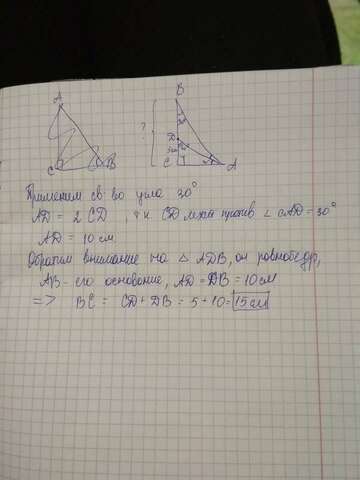 A
C
B
B
?
D
5см
C
A
Применим св-во угла 30°
AD = 2 CD, т к CD лежит против ∠ CAD = 30°
AD = 10 см
Обратим внимание на △ ADB, он равнобедр,
AB - его основание, AD = DB = 10 см
=> BC = CD + DB = 5 + 10 = 15 см